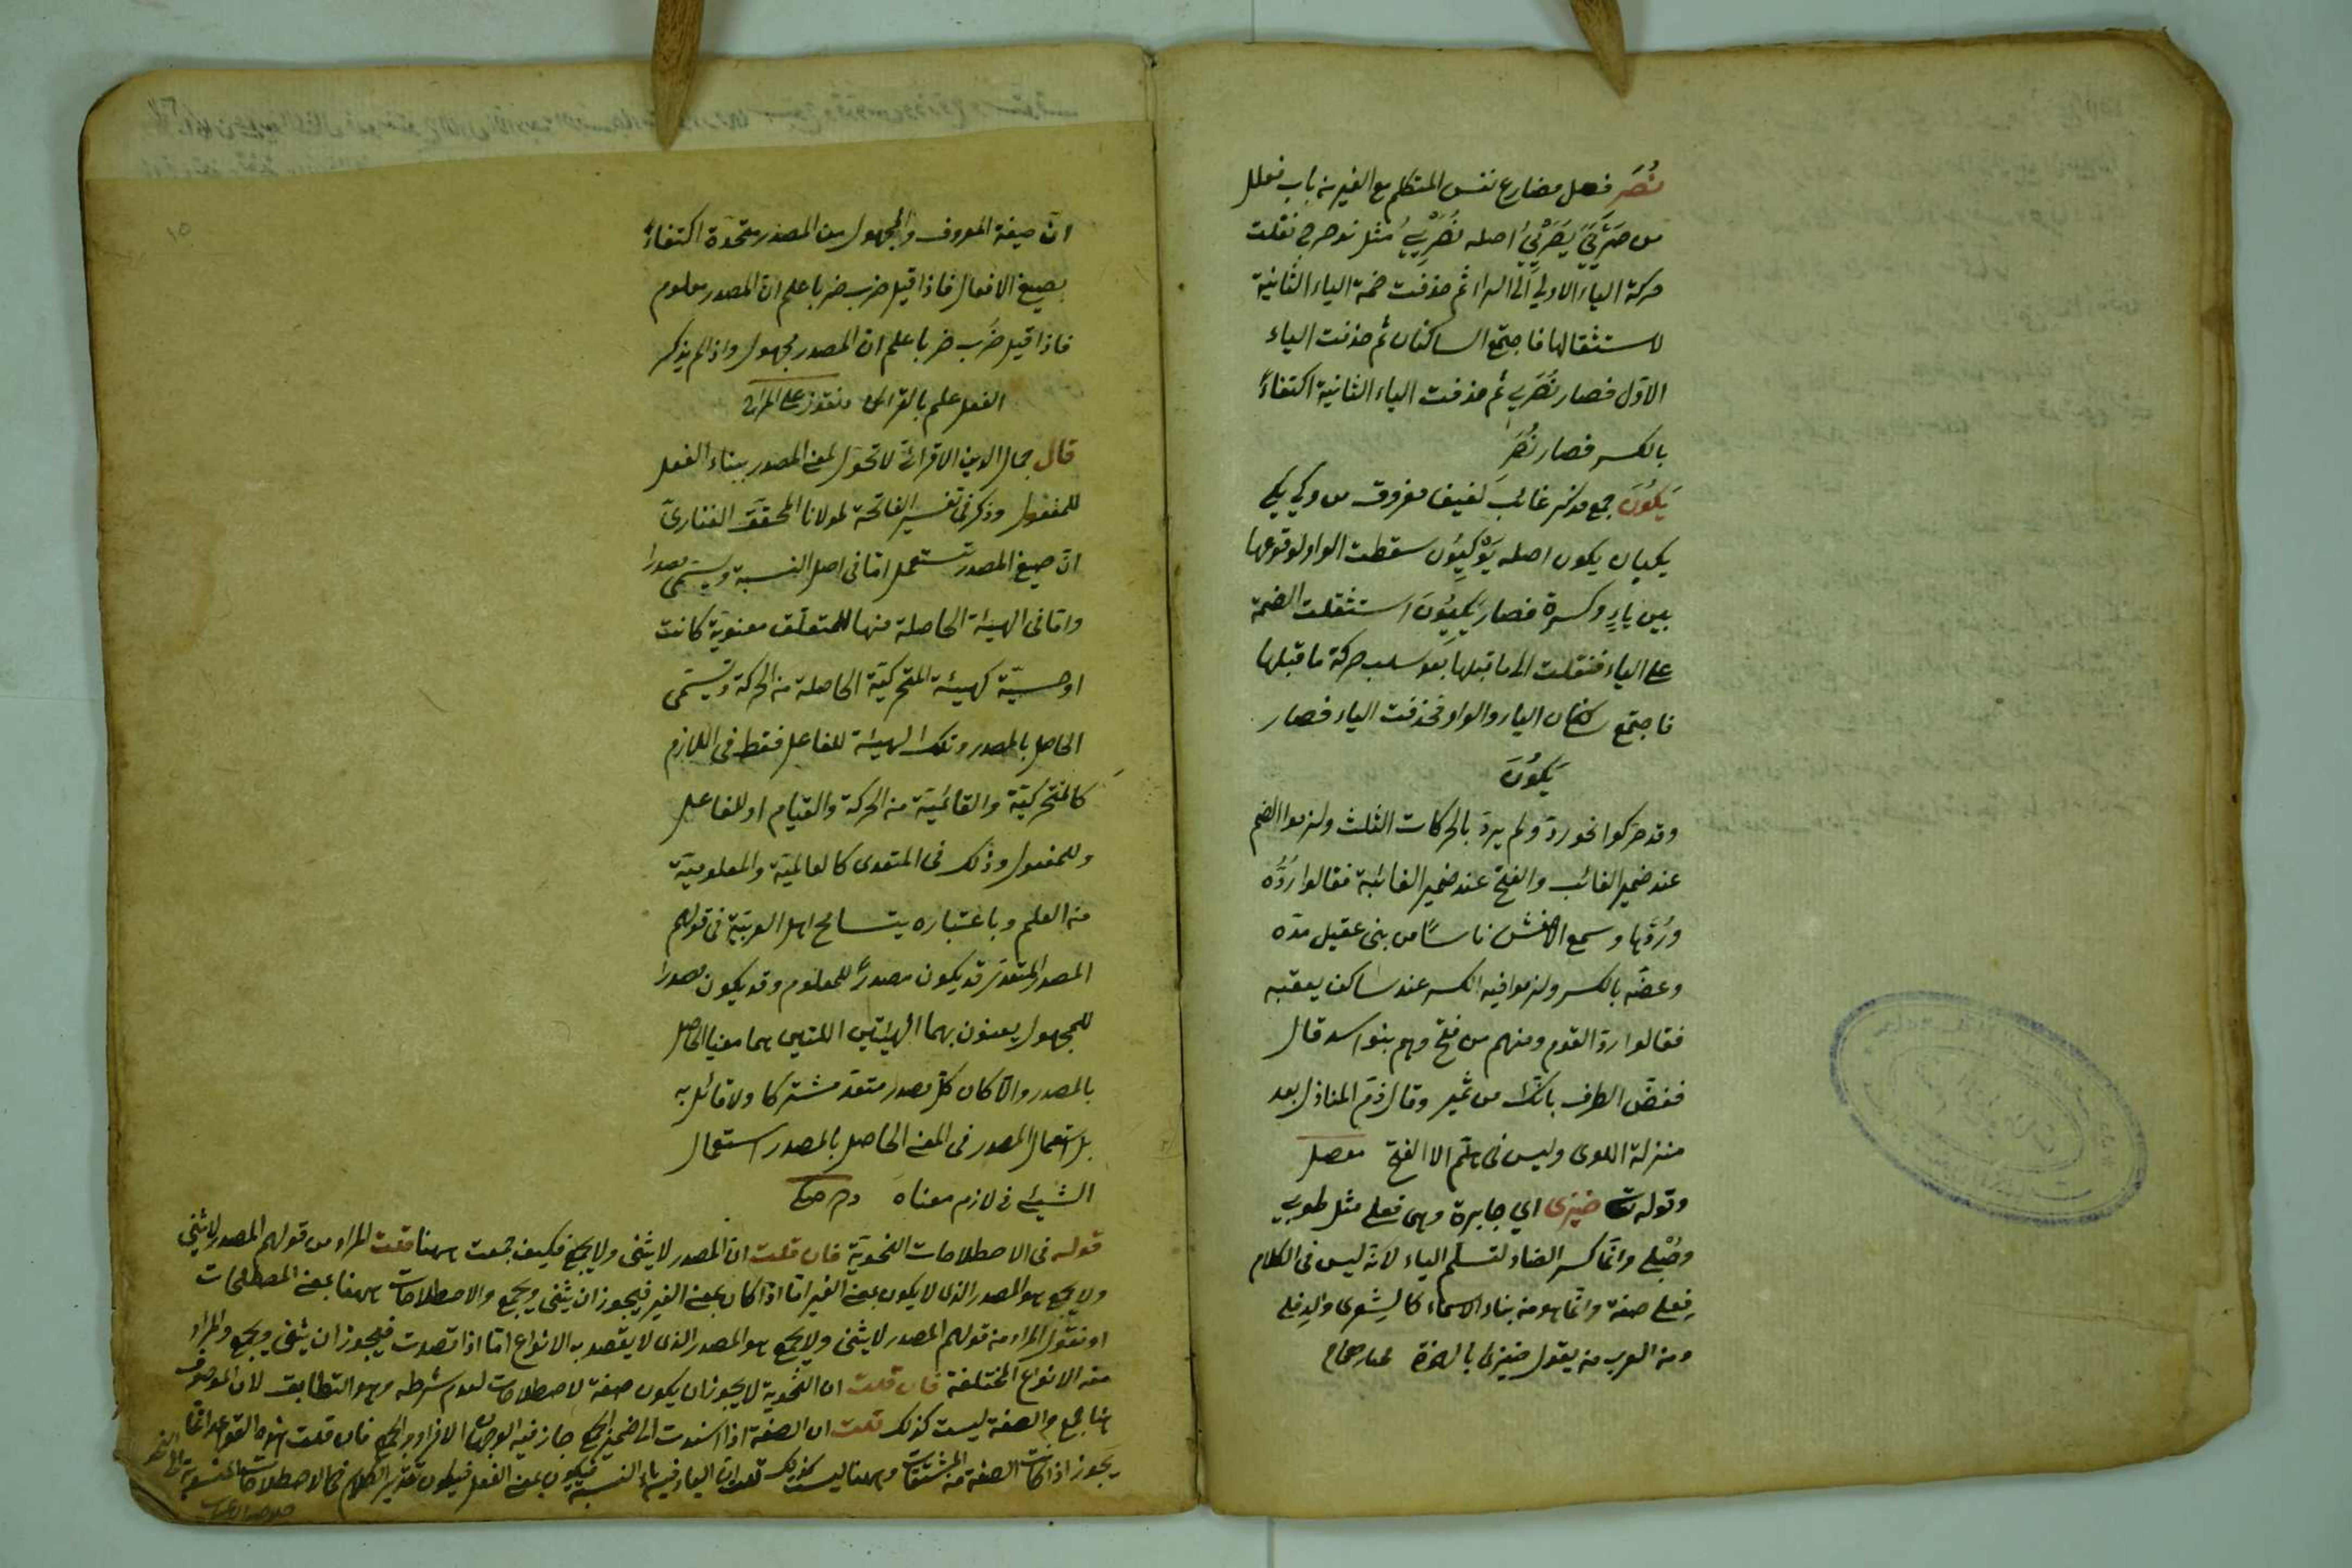 نُصَرِ فعل مضارع نفس المتكلم مع الغير من باب فعلل
من صَرْيَىَ يُصَرْيِيُ اصله نُصَرْيِيُ مثل ندحرج نقلت
حركة الياء الاولي الى الراء ثم حذفت ضمة الياء الثانية
لاستثقالها فاجتمع الساكنان ثم حذفت الياء
الاوّل فصار نُصَرِي ثم حذفت الياء الثانية اكتفاءً
بالكسر فصار نُصَرِ
يَكُونَ جمع مذكر غائب لفيف مفروق من وكي يكي
يكيان يكون اصله يَوْكِيُون سقطت الواو لوقوعها
بين ياءٍ وكسرة فصار يَكِيُونَ استثقلت الضمة
على الياء فنقلت الى ما قبلها بعد سلب حركة ما قبلها
فاجتمع ساكنان الياء والواو فحذفت الياء فصار
يَكُونَ
وقد حركوا نحو ردّ ولم يردّ بالحركات الثلث ولزموا الضم
عند ضمير الغائب والفتح عند ضمير الغائبة فقالوا رُدُّه
ورُدَّها وسمع الاخفش ناسًا من بنى عقيل مدّه
وعضّه بالكسر ولزموا فيه الكسر عند ساكن يعقبه
فقالوا ردّ القوم ومنهم من فتح وهم بنو اسد قال
فغضّ الطرف بانّك من نمير وقال ذمّ المنازل بعد
منزلة اللوى وليس فى هلمّ الا الفتح مفصل
وقوله تعالى ضيزى اي جايرة وهى فعلى مثل طوبي
وحُبْلى وانّما كسر الضاد لتسلم الياء لانّه ليس فى الكلام
فِعلى صفة وانّما هو من بناء الاسماء كالشِعرى والدِفلى
ومن العرب من يقول ضيزى بالهمزة مختار صحاح
انّ صيغة المعروف والمجهول من المصدر متحدة اكتفاءً
بصيغ الافعال فاذا قيل ضرب ضربا علم انّ المصدر معلوم
فاذا قيل ضُرب ضربا علم ان المصدر مجهول واذا لم يذكر
الفعل علم بالقرائن
قال جمال الدين الاقرائى لا تحوّل لمعنى المصدر ببناء الفعل
للمفعول وذكر فى تفسير الفاتحة لمولانا المحقق الفنارىّ
انّ صيغ المصدر تستعمل امّا فى اصل النسبة ويسمّى مصدرا
وامّا فى الهيئة الحاصلة منها للمتعلّق معنوية كانت
او حسيّة كهيئة المتحركيّة الحاصلة من الحركة ويسمّى
الحاصل بالمصدر وتلك الهيئة للفاعل فقط فى اللازم
كالمتحركيّة والقائميّة من الحركة والقيام او للفاعل
وللمفعول وذلك فى المتعدى كالعالميّة والمعلوميّة
من العلم وباعتباره يتسامح اهل العربيّة فى قولهم
المصدر المتعدّى قد يكون مصدرًا للمعلوم وقد يكون مصدرا
للمجهول يعنون بهما الهيئتين اللتين هما معنيا الحاصل
بالمصدر والّا كان كلّ مصدر متعدّ مشتركا ولا قائل به
بل استعمال المصدر فى المعنى الحاصل بالمصدر استعمال
الشيئ فى لازم معناه
قوله فى الاصطلاحات النحويّة فان قلت انّ المصدر لا يثنى ولا يجمع فكيف جمعت ههنا قلت المراد من قولهم المصدر لا يثنى
ولا يجمع هو المصدر الذى لا يكون بمعنى الغير امّا اذا كان بمعنى الغير فيجوز ان يثنى ويجمع والاصطلاحات ههنا بمعنى المصطلحات
او نقول المراد من قولهم المصدر لا يثنى ولا يجمع هو المصدر الذى لا يقصد به الانواع امّا اذا قصدت فيجوز ان يثنى ويجمع والمراد
منه الانواع المختلفة فان قلت ان النحوية لا يجوز ان يكون صفة لاصطلاحات لعدم شرطه وهو التطابق لانّ الموصوف
هنا جمع والصفة ليست كذلك قلت ان الصفة اذا اسندت الى ضمير الجمع جاز فيه الوجهان الافراد والجمع فان قلت هذه القواعد انّما
يجوز اذا كانت الصفة من المشتقات وههنا ليست كذلك قلت انّ الياء فيه ياء النسبة فيكون بمعنى الفعل فيكون تقدير الكلام فى الاصطلاحات المنسوبة الى النحو